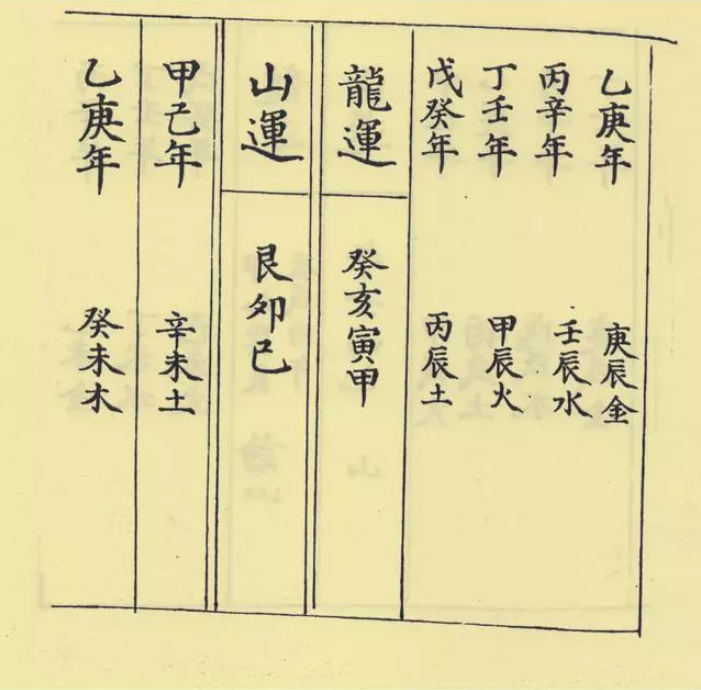 乙庚年 庚辰金
丙辛年 壬辰水
丁壬年 甲辰火
戊癸年 丙辰土
龍運 癸亥寅甲
山運 艮卯巳
甲己年 辛未土
乙庚年 癸未木